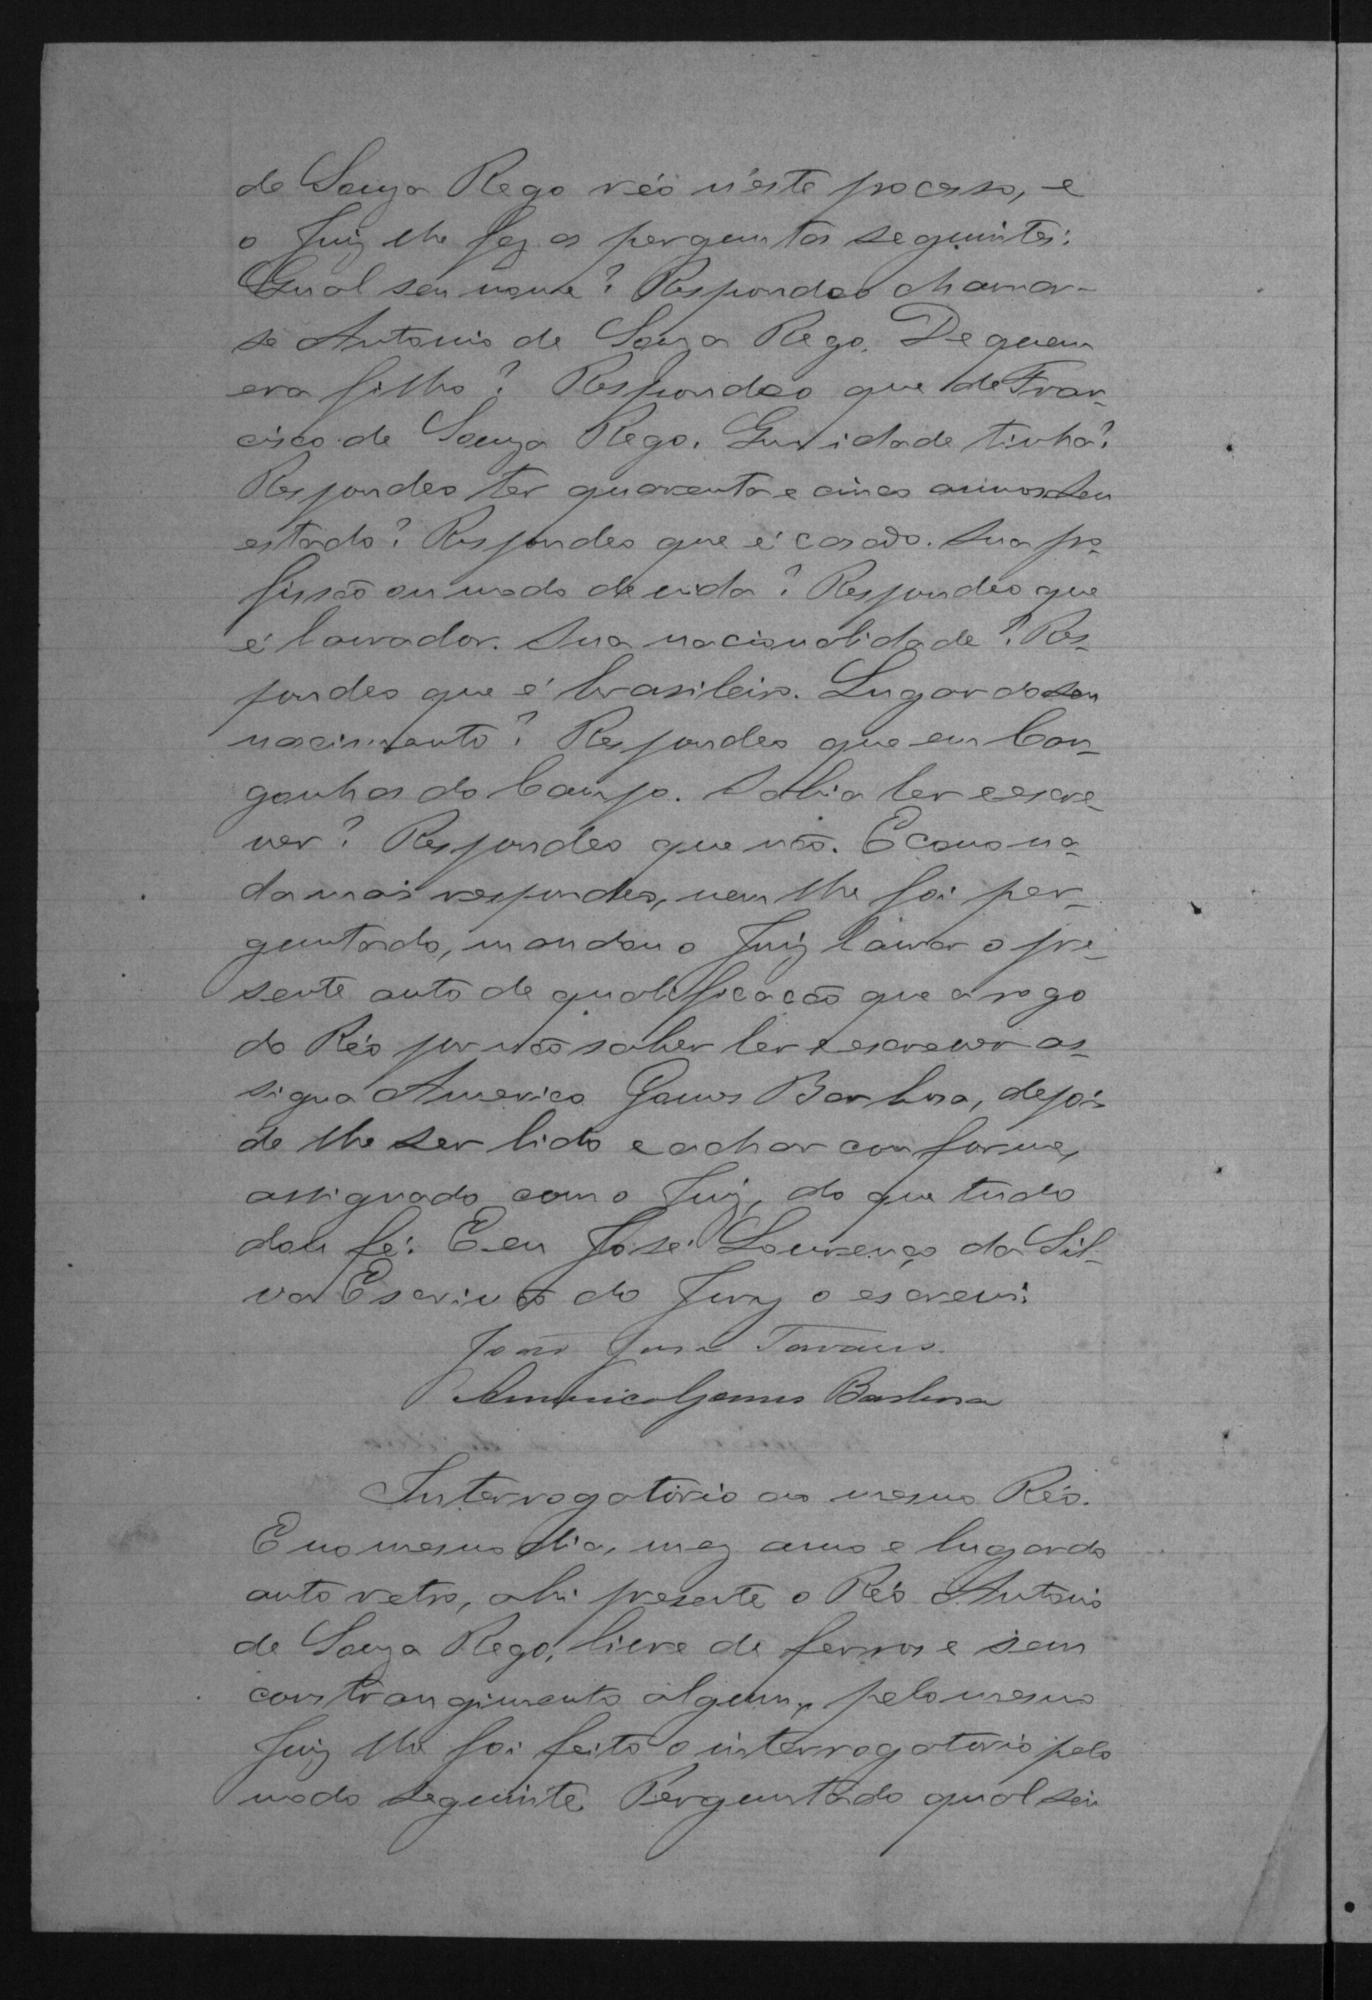 de Souza Rego réo n'este processo, e
o Juiz lhe fez as perguntas seguintes:
Qual seu nome? Respondeo chamar-
se Antonio de Souza Rego. De quem
era filho? Respondeo que de Fran-
cisco de Souza Rego. Que idade tinha?
Respondeo ter quarenta e cinco annos. Seu
estado? Respondeo que é casado. Sua pro-
fissão ou modo de vida? Respondeo que
é lavrador. Sua nacionalidade? Res-
pondeo que é brasileiro. Lugar do seu
nascimento? Respondeo que em Con-
gonhas do Campo. Sabia ler e escre-
ver? Respondeo que não. E como na-
da mais respondeo, nem lhe foi per-
guntado, mandou o Juiz lavrar o pre-
sente auto de qualificação que a rogo
do Réo por não saber ler e escrever as-
signa Americo Gomes Barbosa, depois
de lhe ser lido e achar conforme,
assignado com o Juiz, do que tudo
dou fé. E eu José Lourenço da Sil-
va Escrivão do Jury o escrevi.
João José Tavares.
Americo Gomes Barbosa
Interrogatorio ao mesmo Réo.
E no mesmo dia, mez anno e lugar do
auto retro, ahi presente o Réo Antonio
de Souza Rego, livre de ferros e sem
constrangimento algum, pelo mesmo
Juiz lhe foi feito o interrogatorio pelo
modo seguinte. Perguntado qual seu